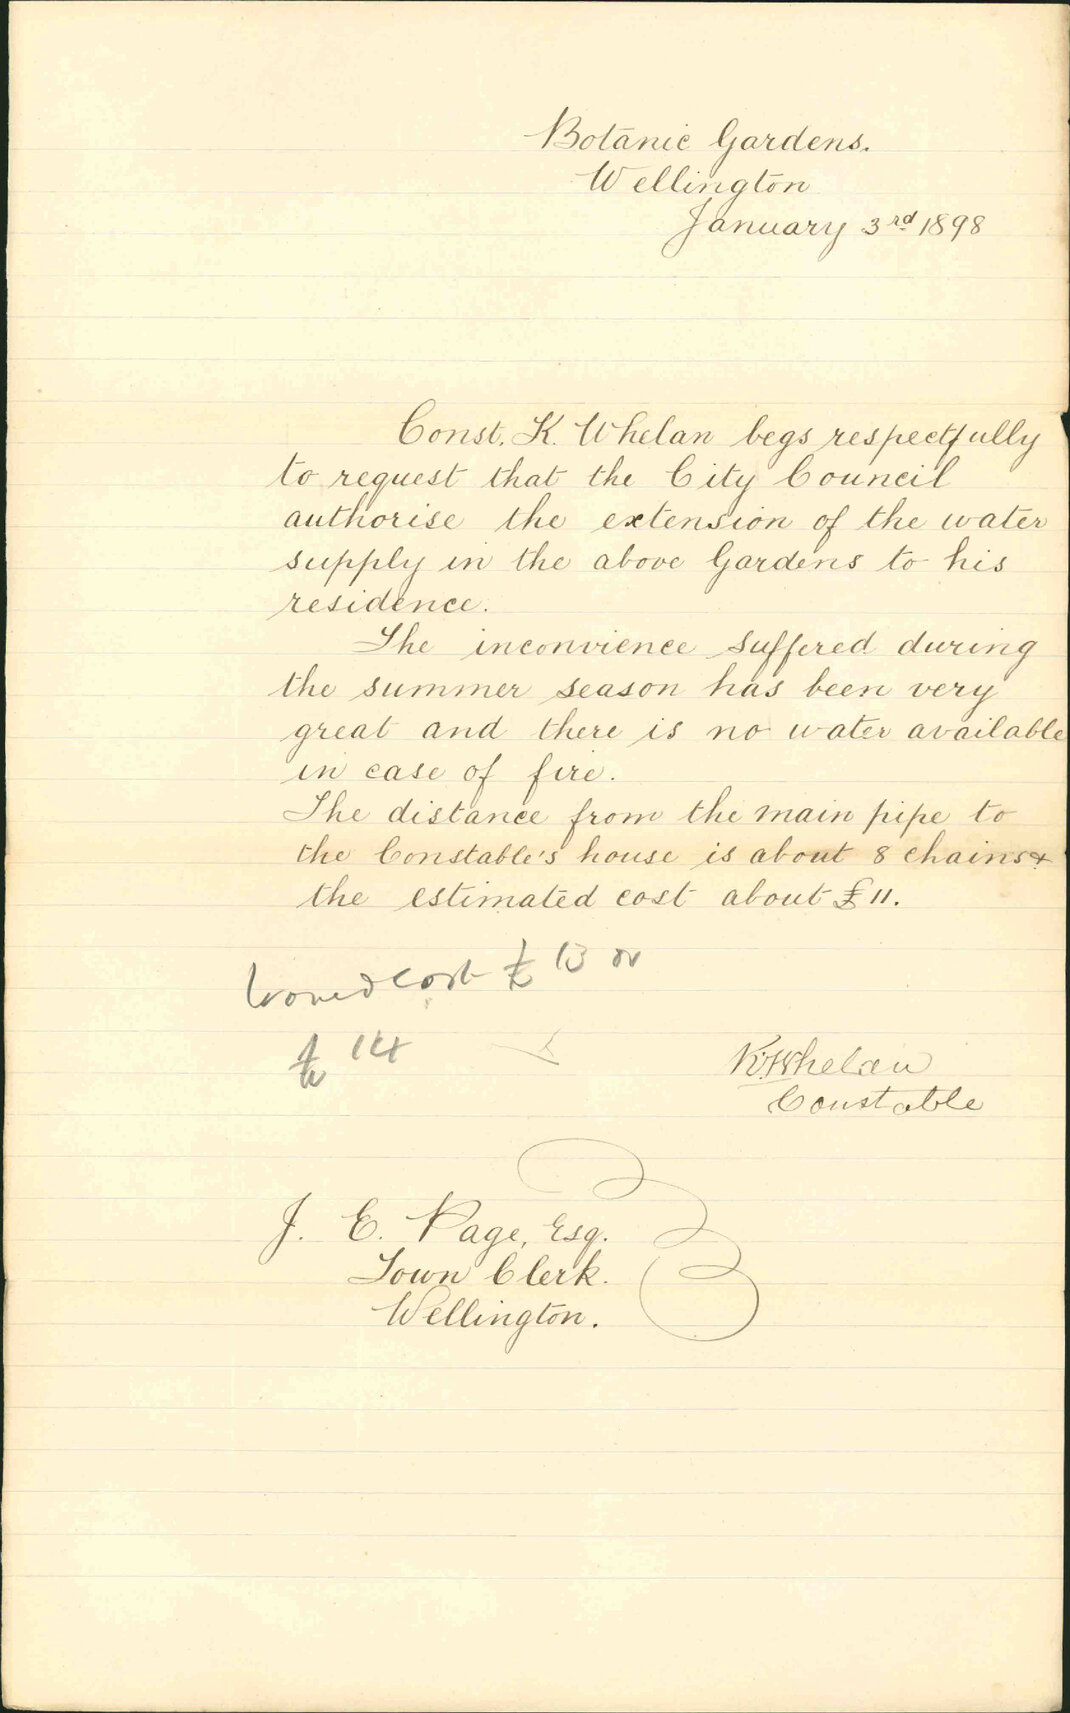 Botanic Gardens.
Wellington
January 3rd 1898
Const. K. Whelan begs respectfully
to request that the City Council
authorise the extension of the water
supply in the above Gardens to his
residence.
The inconvience suffered during
the summer season has been very
great and there is no water available
in case of fire.
The distance from the main pipe to
the Constable's house is about 8 chains &
the estimated cost about £11.
would cost £13 or
£14
K. Whelan
Constable
J. E. Page, Esq.
Town Clerk.
Wellington.